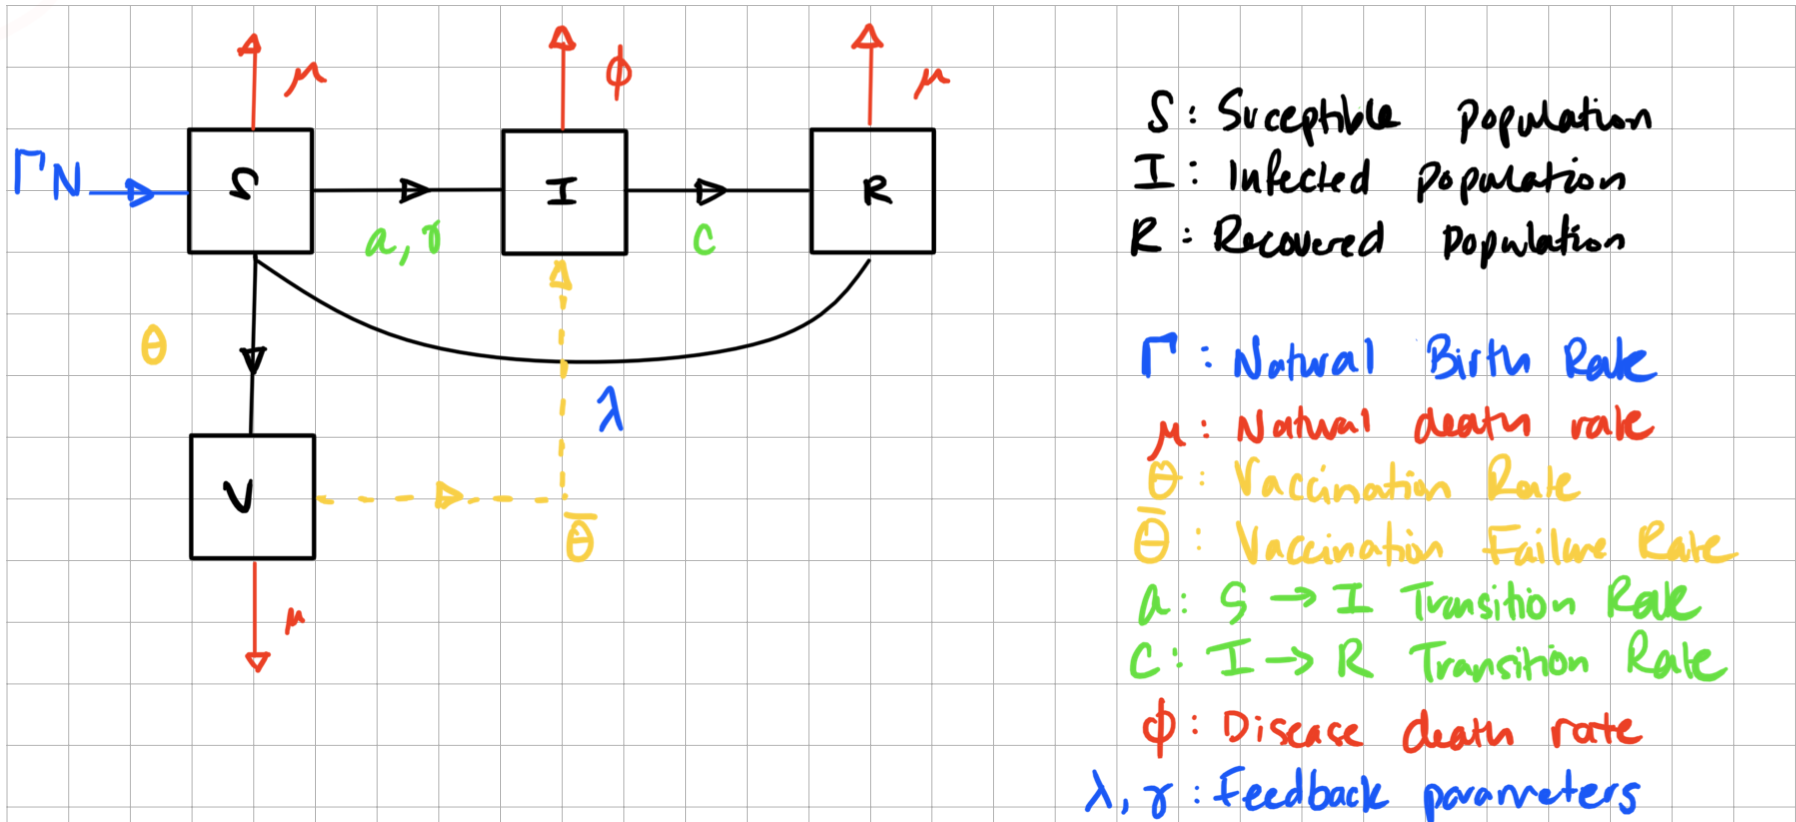 μ ϕ μ
ΓN S I R
a, γ c
θ
λ
V
θ̅
μ
S: Suceptible population
I: Infected population
R: Recovered population
Γ: Natural Birth Rate
μ: Natural death rate
θ: Vaccination Rate
θ̅: Vaccination Failure Rate
a: S → I Transition Rate
C: I → R Transition Rate
ϕ: Disease death rate
λ, γ: Feedback parameters